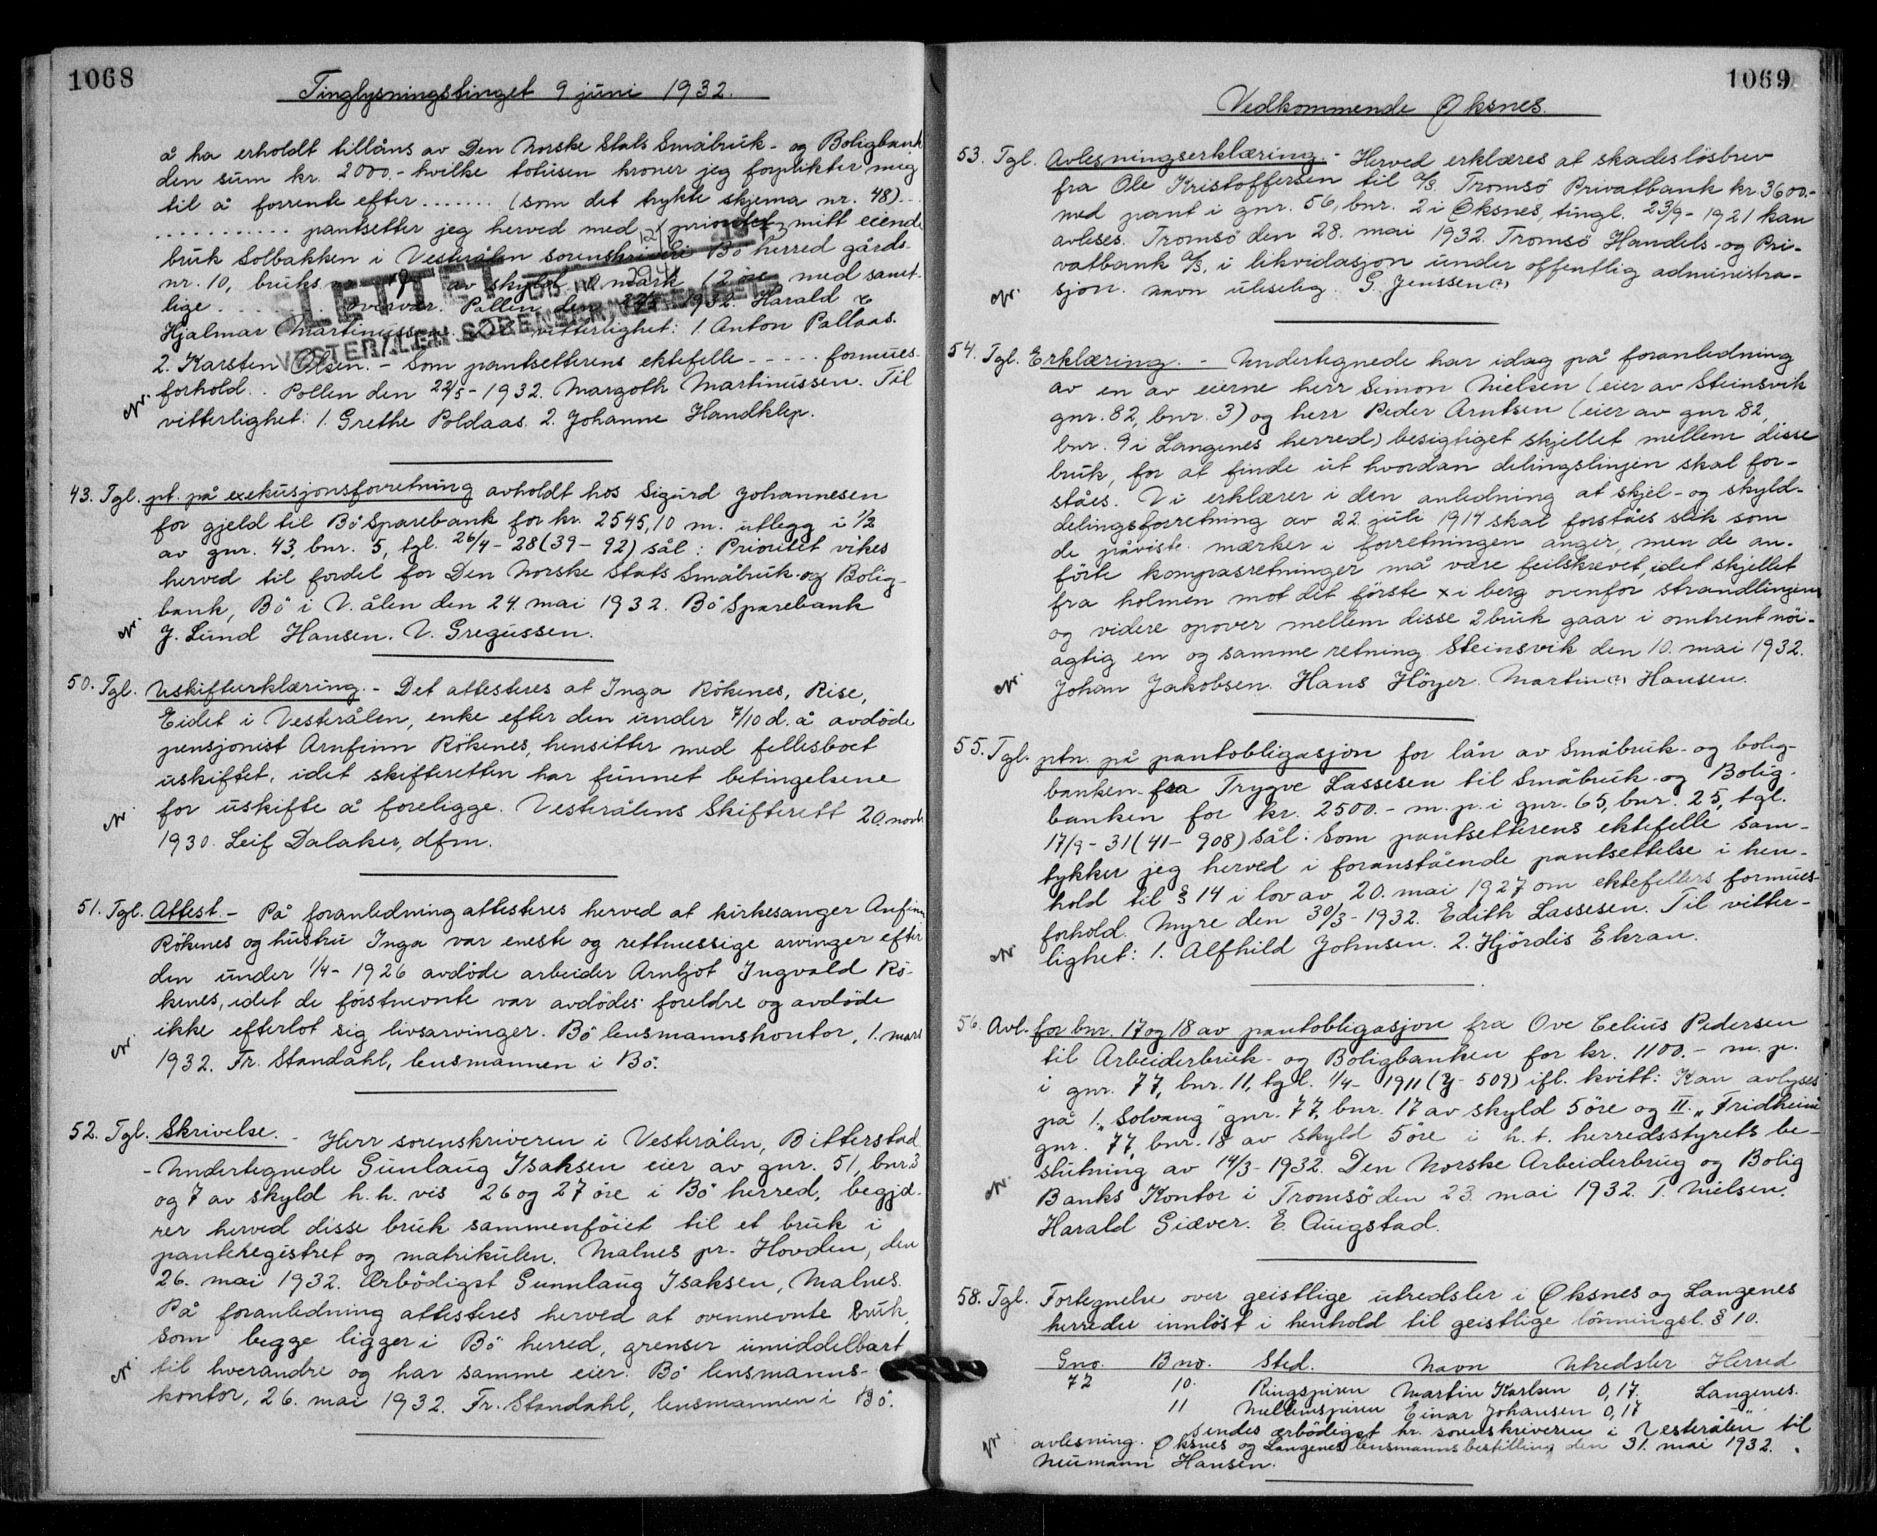 1068
Tinglysningstinget 9 juni 1932.
å ha erholdt tillåns av Den Norske Stats Småbruk- og Boligbank
den sum kr. 2000.- hvilke totusen kroner jeg forplikter meg
til å forrente efter ....... (som det trykte skjema nr. 48)...
........... pantsetter jeg herved med prioritet mitt eiend
bruk Solbakken i Vesterålen sorenskriveri Bö herred gårds-
nr. 10, bruks nr. av skyld mark 12 öre med samt-
lige .... Pollen den 22/5 1932. Harald
Hjalmar Martinussen. Til vitterlighet: 1. Anton Pallaas.
SLETTET
VESTERÅLEN SORENSKRIVEREMBETE
2. Karsten Olsen. - Som pantsetterens ektefelle ----- formues-
forhold. . Pollen den 22/5 - 1932. Margoth Martinussen. Til
vitterlighet: 1. Grethe Poldaas. 2. Johanne Handklep.
43. Tgl. pt. på exekusjonsforretning avholdt hos Sigurd Johannesen
for gjeld til Bö Sparebank for kr. 2545,10 m. utlegg i 1/2
av gnr. 43, bnr. 5, tgl. 26/4 - 28 (39 - 92) sål: Prioritet vikes
herved til fordel for Den Norske Stats Småbruk- og Bolig-
bank, Bö i V.ålen den 24. mai 1932. Bö Sparebank
J. Lund Hansen. V. Gregussen.
50. Tgl. Uskifteerklæring. - Det attesteres at Inga Rökenes, Rise,
Eidet i Vesterålen, enke efter den under 7/10 d. å avdöde
pensjonist Arnfinn Rökenes, hensitter med fellesboet
uskiftet, idet skifteretten har funnet betingelsene
for uskifte å foreligge. Vesterålens Skifterett 20. novb.
1930. Leif Dalaker, dfm.
51. Tgl. Attest. - På foranledning attesteres herved at kirkesanger Anfinn
Rökenes og hustru Inga var eneste og rettmessige arvinger efter
den under 1/4 - 1926 avdöde arbeider Arnljot Ingvald Rö-
kenes, idet de förstnevnte var avdödes foreldre og avdöde
ikke efterlot sig livsarvinger. Bö lensmannskontor, 1. mars
1932. Fr. Standahl, lensmannen i Bö.
52. Tgl. Skrivelse. - Herr sorenskriveren i Vesterålen, Bitterstad
- Undertegnede Gunlaug Isaksen eier av gnr. 51, bnr. 3
og 7 av skyld h. h. vis 26 og 27 öre i Bö herred, begjæ-
rer herved disse bruk sammenföiet til et bruk i
panteregistret og matrikulen. Malnes pr. Hovden, den
26. mai 1932. Ærbödigst Gunnlaug Isaksen, Malnes.
På foranledning attesteres herved at ovennevnte bruk,
som begge ligger i Bö herred, grenser umiddelbart
til hverandre og har samme eier. Bö lensmanns-
kontor, 26. mai 1932. Fr. Standahl, lensmannen i Bö.
1069
Vedkommende Øksnes.
53. Tgl. Avlesningserklæring - Herved erklæres at skadeslösbrev
fra Ole Kristoffersen til A/S. Tromsö Privatbank kr 3600.-
med pant i gnr. 56, bnr. 2 i Øksnes, tingl. 23/9 - 1921 kan
avleses. Tromsö den 28. mai 1932. Tromsö Handels- og Pri-
vatbank A/S. i likvidasjon under offentlig administra-
sjon. navn uleselig. G. Jenssen(?)
54. Tgl. Erklæring. - Undertegnede har idag på foranledning
av en av eierne herr Simon Nielsen (eier av Steinsvik
gnr. 82, bnr. 3) og herr Peder Arntsen (eier av gnr 82,
bnr. 9 i Langenes herred) besigtiget skjellet mellem disse
bruk, for at finde ut hvordan delingslinjen skal for-
ståes. Vi erklærer i den anledning at skjel- og skyld-
delingsforretning av 22. juli 1914 skal forståes slik som
de påviste mærker i forretningen anger, men de an-
förte kompasretninger må være feilskrevet, idet skjellet
fra holmen mot det förste x i berg ovenfor strandlinjen
og videre opover mellem disse 2 bruk gaar i omtrent nöi-
agtig en og samme retning. Steinsvik den 10. mai 1932.
Johan Jakobsen. Hans Höyer. Martin(?) Hansen.
55. Tgl. ptn. på pantobligasjon for lån av Småbruk- og bolig-
banken fra Trygve Lassesen til Småbruk- og Bolig-
banken for kr. 2500.- m. p. i gnr. 65, bnr. 25, tgl.
17/9 - 31 (41 - 908) sål: Som pantsetterens ektefelle sam-
tykker jeg herved i foranstående pantsettelse i hen-
hold til § 14 i lov av 20. mai 1927 om ektefellers formues-
forhold. Myre den 30/3 - 1932. Edith Lassesen. Til vitter-
lighet: 1. Alfhild Johnsen. 2. Hjördis Ekran.
56. Avl. for bnr. 17 og 18 av pantobligasjon fra Ove Celius Pedersen
til Arbeiderbruk- og Boligbanken for kr. 1100.- m. p.
i gnr. 77, bnr. 11, tgl. 1/4 - 1911 (Y - 509) ifl. kvitt: Kan avlyses
på 1. "Solvang" gnr. 77, bnr. 17 av skyld 5 öre og II. "Fridheim"
gnr. 77, bnr. 18 av skyld 5 öre i h. t. herredsstyrets be-
slutning av 14/3 - 1932. Den Norske Arbeiderbrug og Bolig
Banks Kontor i Tromsö den 23. mai 1932. T. Nielsen.
Harald Giæver. E. Augstad.
58. Tgl. Fortegnelse over geistlige utredsler i Øksnes og Langenes
herreder innlöst i henhold til geistlige lönningsl. § 10.
Gno. Bno. Sted. Navn Utredsler Herred
72 10. Ringspiren Martin Karlsen 0,17. Langenes.
11 Mellemspiren Einar Johansen 0,17 "
Sendes ærbödigst hr. sorenskriveren i Vesterålen til
avlesning. Øksnes og Langenes lensmannsbestilling den 31. mai 1932.
Neumann Hansen.